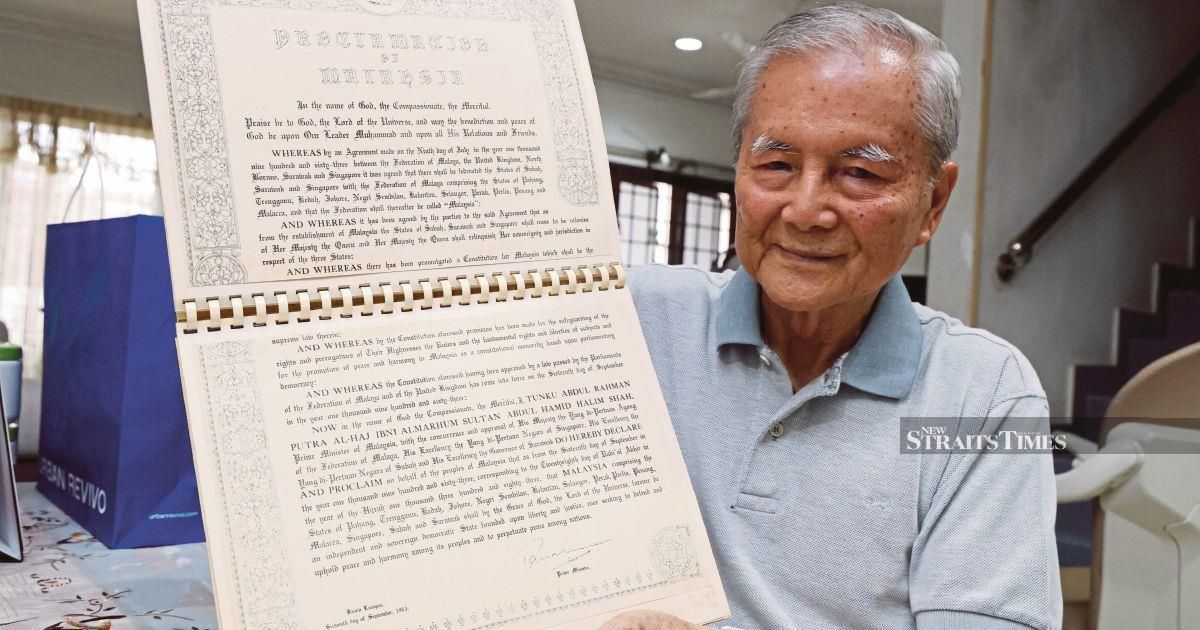 PROCLAMATION
OF
MALAYSIA
In the name of God, the Compassionate, the Merciful.
Praise be to God, the Lord of the Universe, and may the benediction and peace of
God be upon Our Leader Muhammad and upon all His Relations and Friends.
WHEREAS by an Agreement made on the Ninth day of July in the year one thousand
nine hundred and sixty-three between the Federation of Malaya, the United Kingdom, North
Borneo, Sarawak and Singapore it was agreed that there shall be federated the States of Sabah,
Sarawak and Singapore with the Federation of Malaya comprising the States of Pahang,
Trengganu, Kedah, Johore, Negri Sembilan, Kelantan, Selangor, Perak, Perlis, Penang and
Malacca, and that the Federation shall thereafter be called "Malaysia":
AND WHEREAS it has been agreed by the parties to the said Agreement that as
from the establishment of Malaysia the States of Sabah, Sarawak and Singapore shall cease to be colonies
of Her Majesty the Queen and Her Majesty the Queen shall relinquish Her sovereignty and jurisdiction in
respect of the three States:
AND WHEREAS there has been promulgated a Constitution for Malaysia which shall be the
supreme law therein:
AND WHEREAS by the Constitution aforesaid provision has been made for the safeguarding of the
rights and prerogatives of Their Highnesses the Rulers and the fundamental rights and liberties of subjects and
for the promotion of peace and harmony in Malaysia as a constitutional monarchy based upon parliamentary
democracy:
AND WHEREAS the Constitution aforesaid having been approved by a law passed by the Parliaments
of the Federation of Malaya and of the United Kingdom has come into force on the Sixteenth day of September
in the year one thousand nine hundred and sixty-three:
NOW in the name of God the Compassionate, the Merciful, I, TUNKU ABDUL RAHMAN
PUTRA AL-HAJ IBNI ALMARHUM SULTAN ABDUL HAMID HALIM SHAH,
Prime Minister of Malaysia, with the concurrence and approval of His Majesty the Yang di-Pertuan Agong
of the Federation of Malaya, His Excellency the Yang di-Pertuan Negara of Singapore, His Excellency the
Yang di-Pertuan Negara of Sabah and His Excellency the Governor of Sarawak DO HEREBY DECLARE
AND PROCLAIM on behalf of the peoples of Malaysia that as from the Sixteenth day of September in
the year one thousand nine hundred and sixty-three, corresponding to the Twentyeighth day of Rabi'al Akhir in
the year of the Hijrah one thousand three hundred and eighty three, that MALAYSIA comprising the
States of Pahang, Trengganu, Kedah, Johore, Negri Sembilan, Kelantan, Selangor, Perak, Perlis, Penang,
Malacca, Singapore, Sabah and Sarawak shall by the Grace of God, the Lord of the Universe, forever be
an independent and sovereign democratic State founded upon liberty and justice, ever seeking to defend and
uphold peace and harmony among its peoples and to perpetuate peace among nations.
Prime Minister.
Kuala Lumpur,
Sixteenth day of September, 1963.
URBAN REVIVO
urbanrevivo.com
NEW
STRAITS TIMES